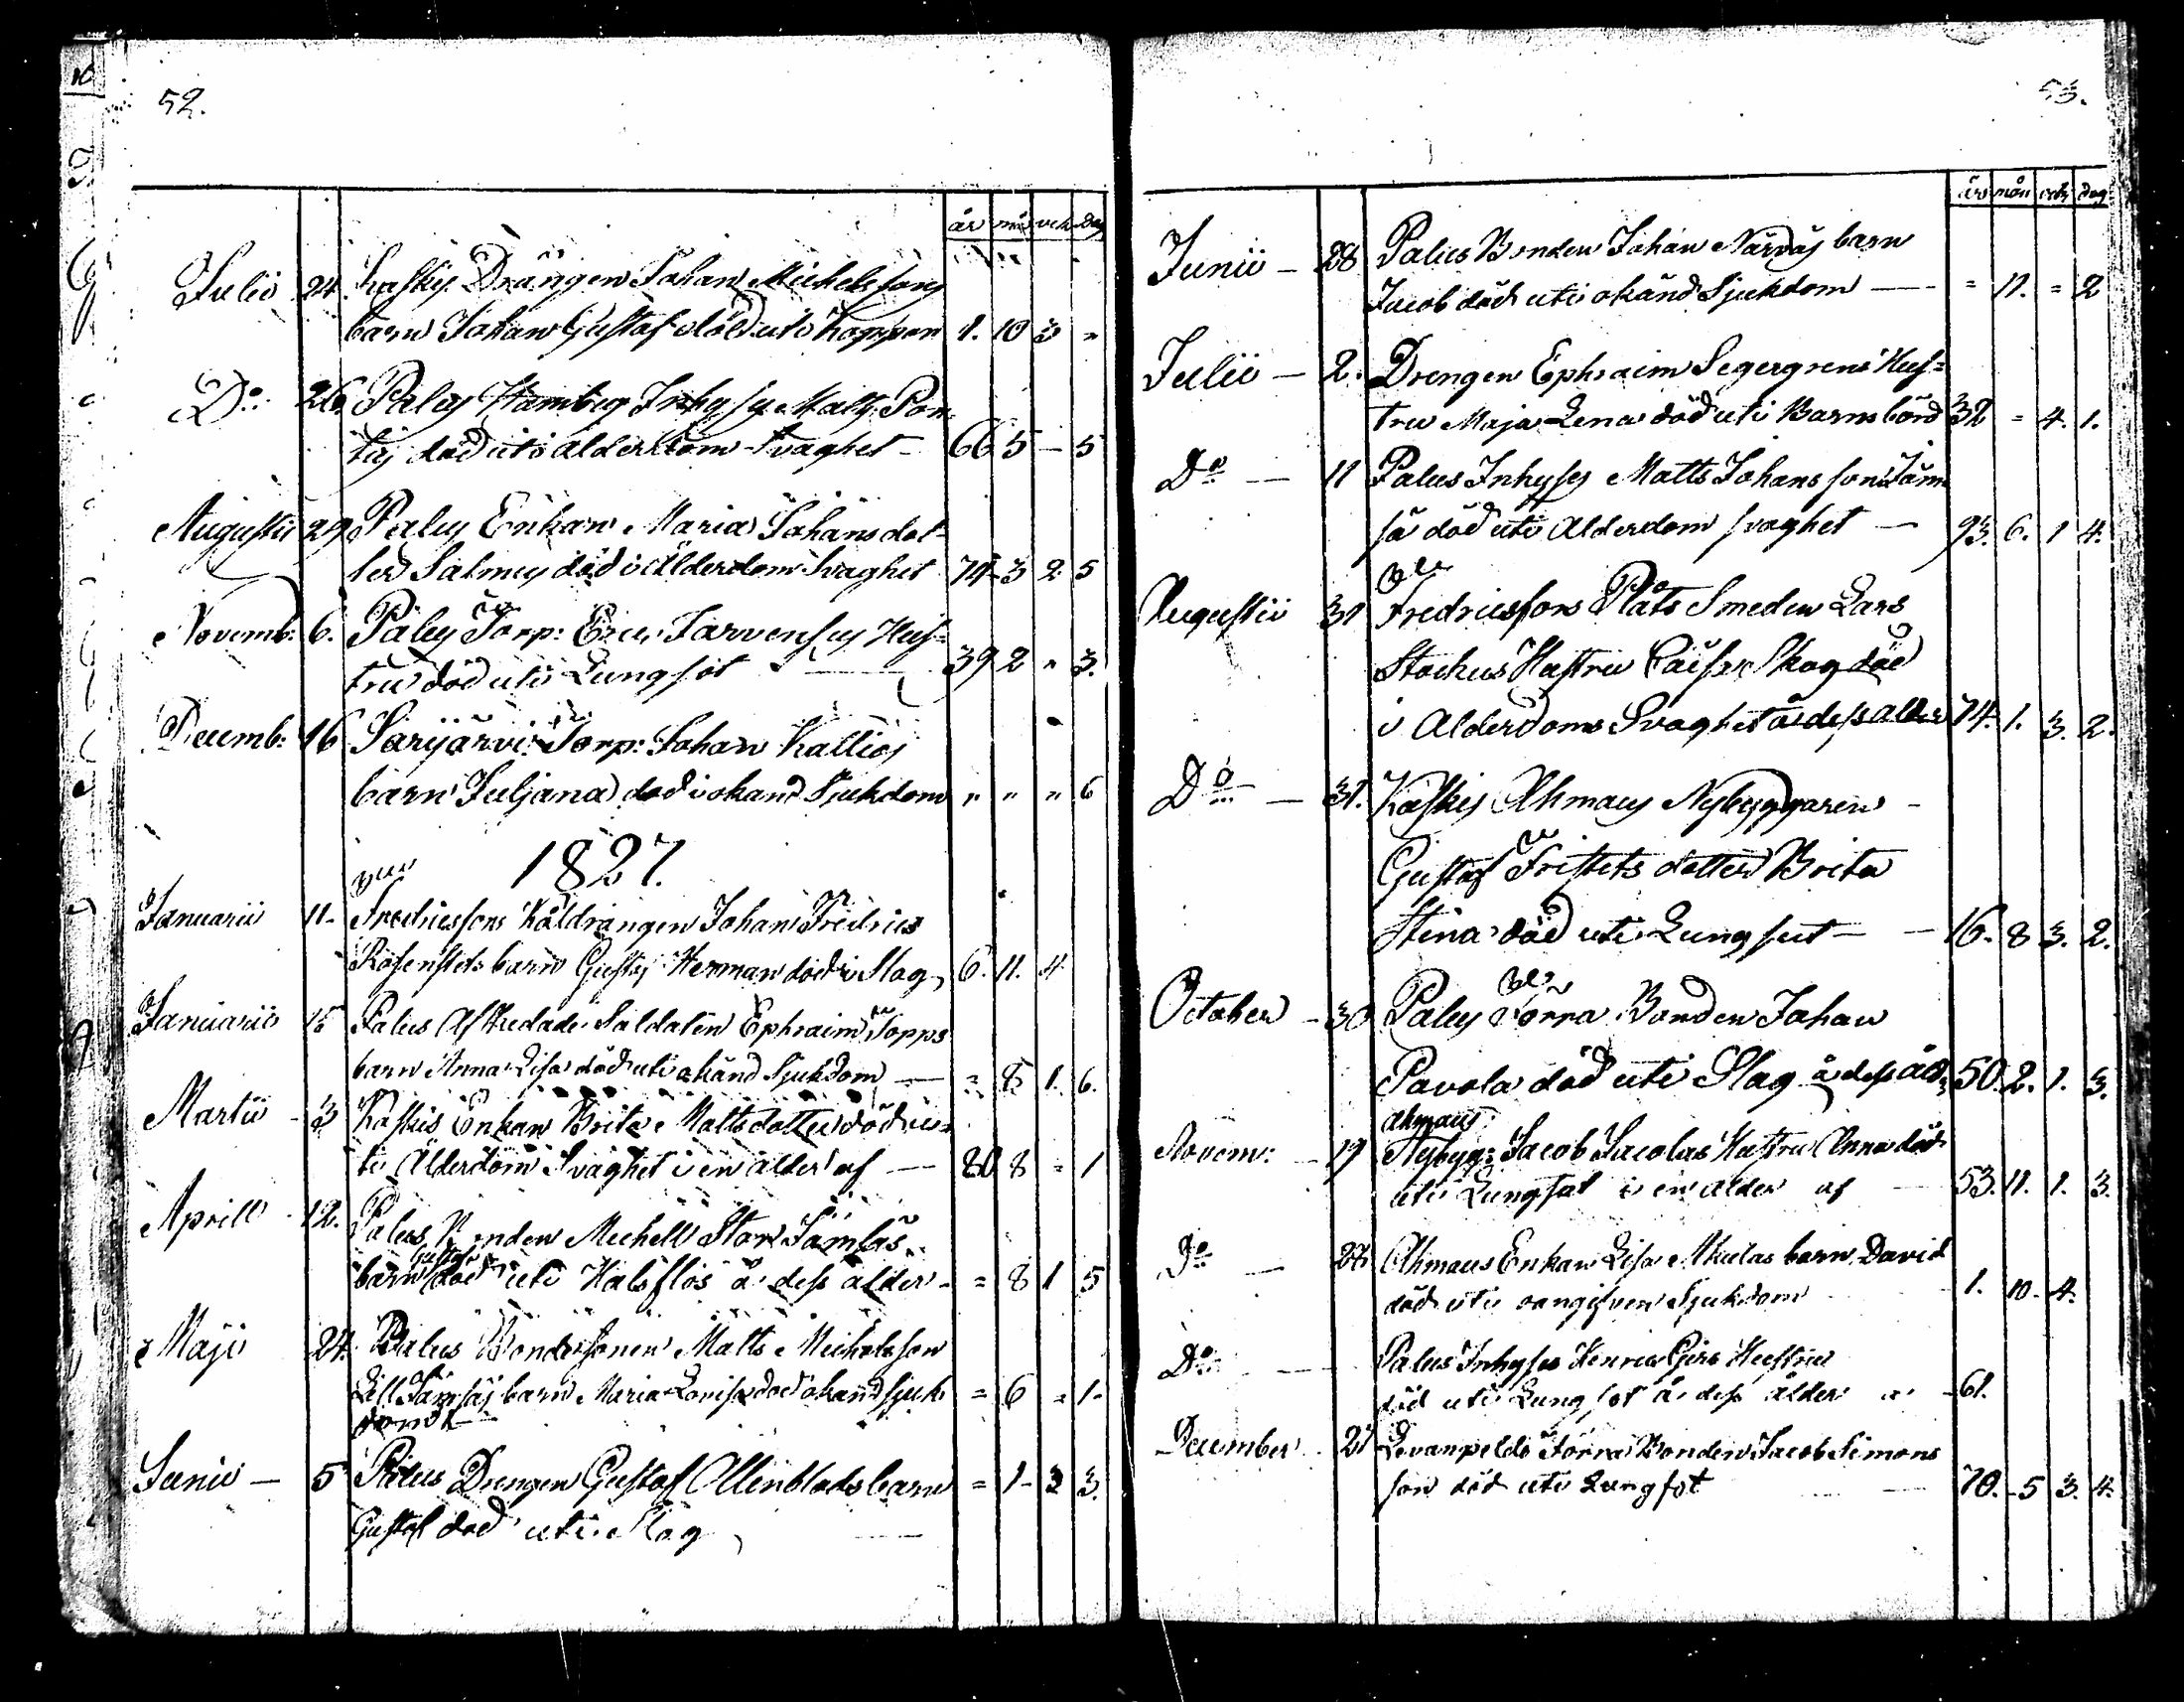 52.
år må vek dag
Julii 24. Kaskis Drängen Johan Michelssons
barn Johan Gustaf död uti koppor 1. 10 3 "
Do: 26. Palus Inhyses Matts Pon
tus död uti ålderdom svaghet — 66 5 — 5
Augustii 29 Palus Enkan Maria Johansdot-
ter Salmus död i Ålderdom Svaghet 74 3 2 5
Novemb: 6. Palus Torp: Eric Jarvensus Hus-
tru död uti Lungsot 39 2 " 3.
Decemb: 16 Särijärvi Torp: Johan Kallios
barn Juljana död i okänd Sjukdom " " " 6
1827.
Januarii 11. Fredricsfors Koldrängen Johan Fredrics
Rosenstets barn Gustaf Herman död i Slag 6. 11. 4
Januarii 15 Palus Afskedade Saldaten Ephraim Topps
barn Anna Lisa död uti okänd Sjukdom — = 8 1. 6.
Martii - 3 Kaskis Enkan Brita Mattsdotter död u-
ti Ålderdom Svaghet i en ålder af — 80 8 = 1
Aprill - 12. Palus Bonden Michell Stor Jämsäs
Gustaf
barn död uti Halsflos å dess ålder - = 8 1 5
Maji 24. Palus Bondesonen Matts Michelsson
Lill Jämsäs barn Maria Lovisa död okänd sjuk = 6 = 1.
dom
Junii — 5 Palus Drengen Gustaf Ollenblads barn = 1 - 3 3.
Gustaf död uti Slag
53.
års mån vek dag
Junii - 28 Palus Bonden Johan Närväs barn
Jacob död uti okänd Sjukdom — = 11. = 2
Julii — 2. Drengen Ephraim Segergrens Hus=
tru Maja Lena död uti Barnsbörd 32 = 4. 1.
Do — 11 Palus Inhyses Matts Johansson Jäm
sä död uti Alderdom svaghet — 93. 6. 1 4.
Augustii 31 Fredricsfors Plåt Smeden Lars
Stockus Hustru Caisa Skog död
i Alderdoms Svaghet å dess alder 74. 1. 3. 2.
Do — 31. Kaskis Ahmaus Nybyggaren
Gustaf Fristets dotter Brita
Stina död uti Lungsot — 16. 8 3. 2.
October - 30 Palus Förra Bonden Johan
Pavola död uti Slag å dess åld 50. 2. 1. 3.
Ahmaus
Novem: - 19 Nybygg: Jacob Jacolas Hustru Anna död
uti Lungsot i en alder af — 53. 11. 1. 3.
Do — 27. Ahmaus Enkan Lisa Akulas barn David
död uti oangifven Sjukdom 1. 10. 4.
Do — Palus Inhyses Henric Gers Hustru
död uti Lungsot å dess ålder a - 61.
December 21 Levanpeldo Förra Bonden Jacob Simons
son död uti Lungsot 70. - 5 3. 4.